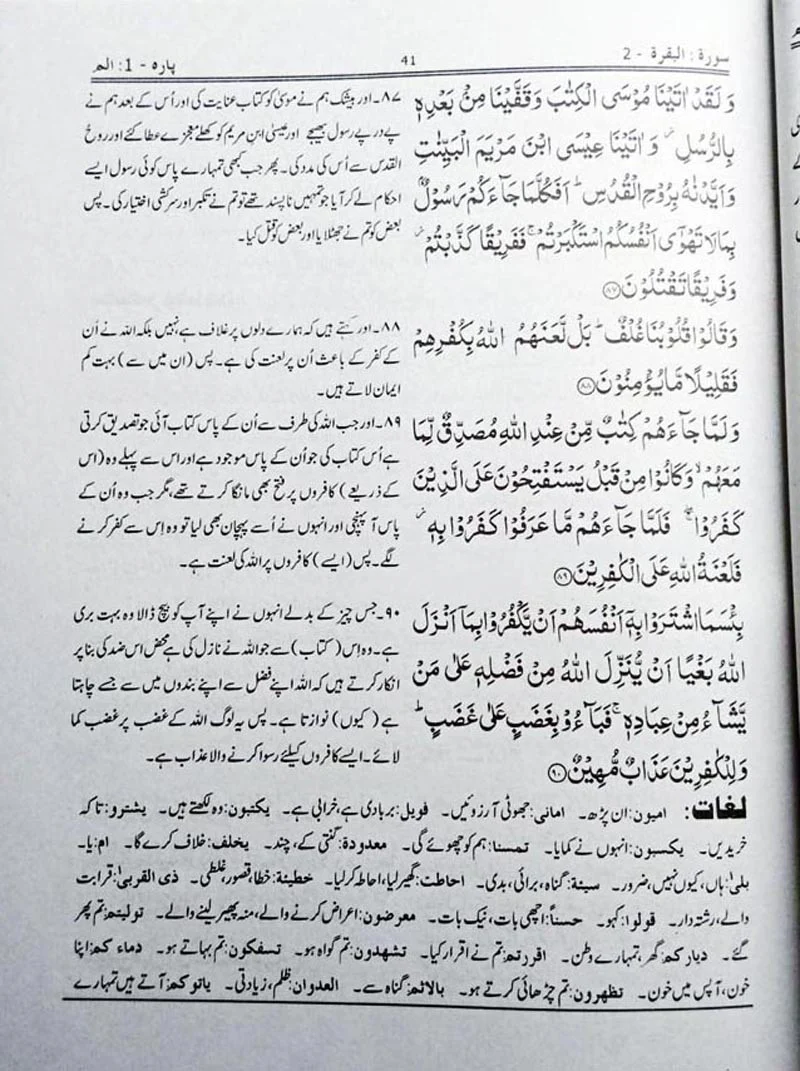 سورۃ: البقرۃ - 2
41
پارہ - 1: الم
وَ لَقَدْ اٰتَیْنَا مُوْسَی الْکِتٰبَ وَقَفَّیْنَا مِنْۢ بَعْدِہٖ
بِالرُّسُلِ ۫ وَاٰتَیْنَا عِیْسَی ابْنَ مَرْیَمَ الْبَیِّنٰتِ
وَاَیَّدْنٰہُ بِرُوْحِ الْقُدُسِ ؕ اَفَکُلَّمَا جَآءَکُمْ رَسُوْلٌۢ
بِمَا لَا تَھْوٰٓی اَنْفُسُکُمُ اسْتَکْبَرْتُمْ ۚ فَفَرِیْقًا کَذَّبْتُمْ ۫
وَفَرِیْقًا تَقْتُلُوْنَ ﴿۸۷﴾
۸۷۔ اور بیشک ہم نے موسیٰ کو کتاب عنایت کی اور اُس کے بعد ہم نے
پے در پے رسول بھیجے اور عیسیٰ ابن مریم کو کھلے معجزے عطا کئے اور روح
القدس سے اُس کی مدد کی۔ پھر جب کبھی تمہارے پاس کوئی رسول ایسے
احکام لے کر آیا جو تمہیں ناپسند تھے تو تم نے تکبر اور سرکشی اختیار کی۔ پس
بعض کو تم نے جھٹلایا اور بعض کو قتل کیا۔
وَقَالُوْا قُلُوْبُنَا غُلْفٌ ؕ بَلْ لَّعَنَھُمُ اللہُ بِکُفْرِھِمْ
فَقَلِیْلًا مَّا یُؤْمِنُوْنَ ﴿۸۸﴾
۸۸۔ اور کہتے ہیں کہ ہمارے دلوں پر غلاف ہے نہیں بلکہ اللہ نے اُن
کے کفر کے باعث اُن پر لعنت کی ہے۔ پس (ان میں سے) بہت کم
ایمان لاتے ہیں۔
وَلَمَّا جَآءَھُمْ کِتٰبٌ مِّنْ عِنْدِ اللہِ مُصَدِّقٌ لِّمَا
مَعَھُمْ ۙ وَکَانُوْا مِنْ قَبْلُ یَسْتَفْتِحُوْنَ عَلَی الَّذِیْنَ
کَفَرُوْا ۚ فَلَمَّا جَآءَھُمْ مَّا عَرَفُوْا کَفَرُوْا بِہٖ ۫
فَلَعْنَۃُ اللہِ عَلَی الْکٰفِرِیْنَ ﴿۸۹﴾
۸۹۔ اور جب اللہ کی طرف سے اُن کے پاس کتاب آئی جو تصدیق کرتی
ہے اُس کتاب کی جو اُن کے پاس موجود ہے اور اس سے پہلے وہ (اس
کے ذریعے) کافروں پر فتح بھی مانگا کرتے تھے، مگر جب وہ اُن کے
پاس آ پہنچی اور انہوں نے اُسے پہچان بھی لیا تو وہ اِس سے کفر کرنے
لگے۔ پس (ایسے) کافروں پر اللہ کی لعنت ہے۔
بِئْسَمَا اشْتَرَوْا بِہٖۤ اَنْفُسَھُمْ اَنْ یَّکْفُرُوْا بِمَاۤ اَنْزَلَ
اللہُ بَغْیًا اَنْ یُّنَزِّلَ اللہُ مِنْ فَضْلِہٖ عَلٰی مَنْ
یَّشَآءُ مِنْ عِبَادِہٖ ۚ فَبَآءُوْ بِغَضَبٍ عَلٰی غَضَبٍ ؕ
وَلِلْکٰفِرِیْنَ عَذَابٌ مُّھِیْنٌ ﴿۹۰﴾
۹۰۔ جس چیز کے بدلے انہوں نے اپنے آپ کو بیچ ڈالا وہ بہت بری
ہے۔ وہ اِس (کتاب) سے جو اللہ نے نازل کی ہے محض اس ضد کی بنا پر
انکار کرتے ہیں کہ اللہ اپنے فضل سے اپنے بندوں میں سے جسے چاہتا
ہے (کیوں) نوازتا ہے۔ پس یہ لوگ اللہ کے غضب پر غضب کما
لائے۔ ایسے کافروں کیلئے رسوا کرنے والا عذاب ہے۔
لغات: امیون: ان پڑھ۔ امانی: جھوٹی آرزوئیں۔ فویل: بربادی ہے، خرابی ہے۔ یکتبون: وہ لکھتے ہیں۔ یشترو: تاکہ
خریدیں۔ یکسبون: انہوں نے کمایا۔ تمسنا: ہم کو چھوئے گی۔ معدودۃ: گنتی کے، چند۔ یخلف: خلاف کرے گا۔ ام: یا۔
بلیٰ: ہاں، کیوں نہیں، ضرور۔ سیئۃ: گناہ، برائی، بدی۔ احاطت: گھیر لیا، احاطہ کر لیا۔ خطیئۃ: خطا، قصور، غلطی۔ ذی القربیٰ: قرابت
والے، رشتہ دار۔ قولوا: کہو۔ حسناً: اچھی بات، نیک بات۔ معرضون: اعراض کرنے والے، منہ پھیر لینے والے۔ تولیتم: تم پھر
گئے۔ دیارکم: گھر، تمہارے وطن۔ اقررتم: تم نے اقرار کیا۔ تشھدون: تم گواہ ہو۔ تسفکون: تم بہاتے ہو۔ دماءکم: اپنا
خون، آپس میں خون۔ تظھرون: تم چڑھائی کرتے ہو۔ بالاثم: گناہ سے۔ العدوان: ظلم، زیادتی۔ یاتوکم: آتے ہیں تمہارے